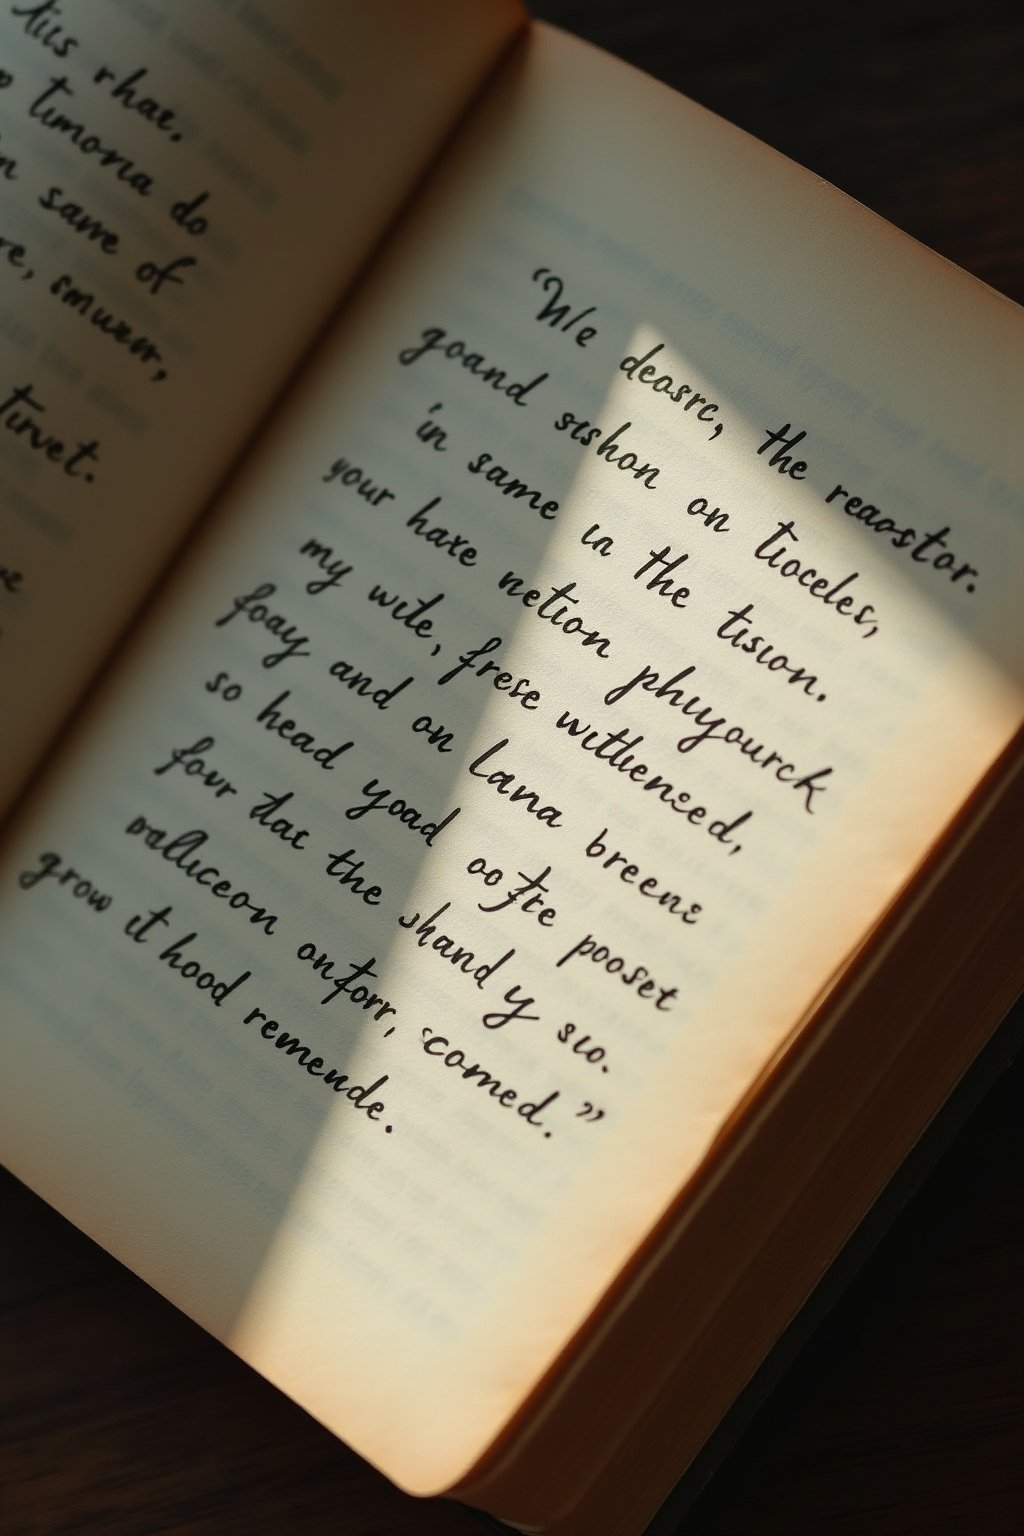 tius rhae,
timorna do
sarre of
re, smuwr,
tirvet.
“We deosrc, the reaostor.
goand sishon on tioceles,
in same in the tision.
your haxe netion phyyourck
my wite, frese withenced,
foay and on lana breene
so head yoad oo fte pooset
four tlac the shand y sio.
walliceon onforr, ‘comed.”
grow it hood remende.